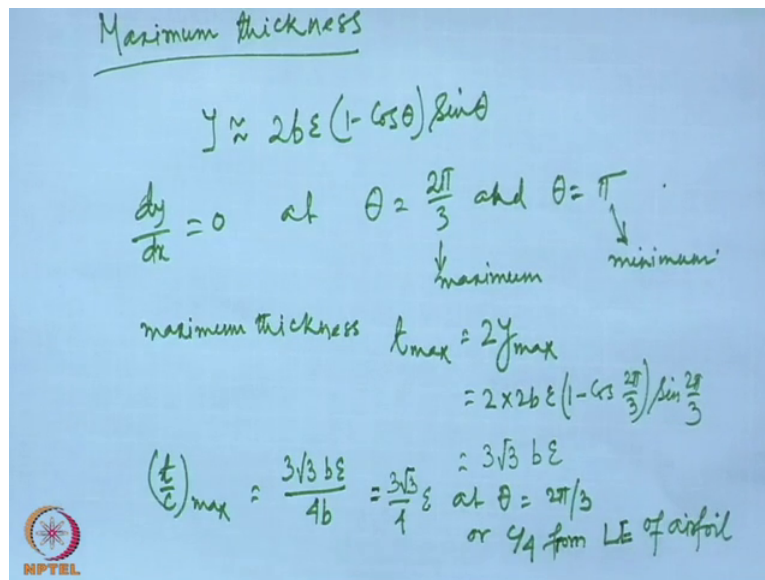 Maximum thickness
y ≈ 2bε (1 - Cosθ) Sinθ
dy/dx = 0 at θ = 2π/3 and θ = π
maximum minimum
maximum thickness t_max = 2y_max
= 2×2bε (1 - Cos 2π/3) Sin 2π/3
= 3√3 bε
(t/c)_max = 3√3 bε / 4b = 3√3/4 ε at θ = 2π/3
or c/4 from LE of airfoil
NPTEL